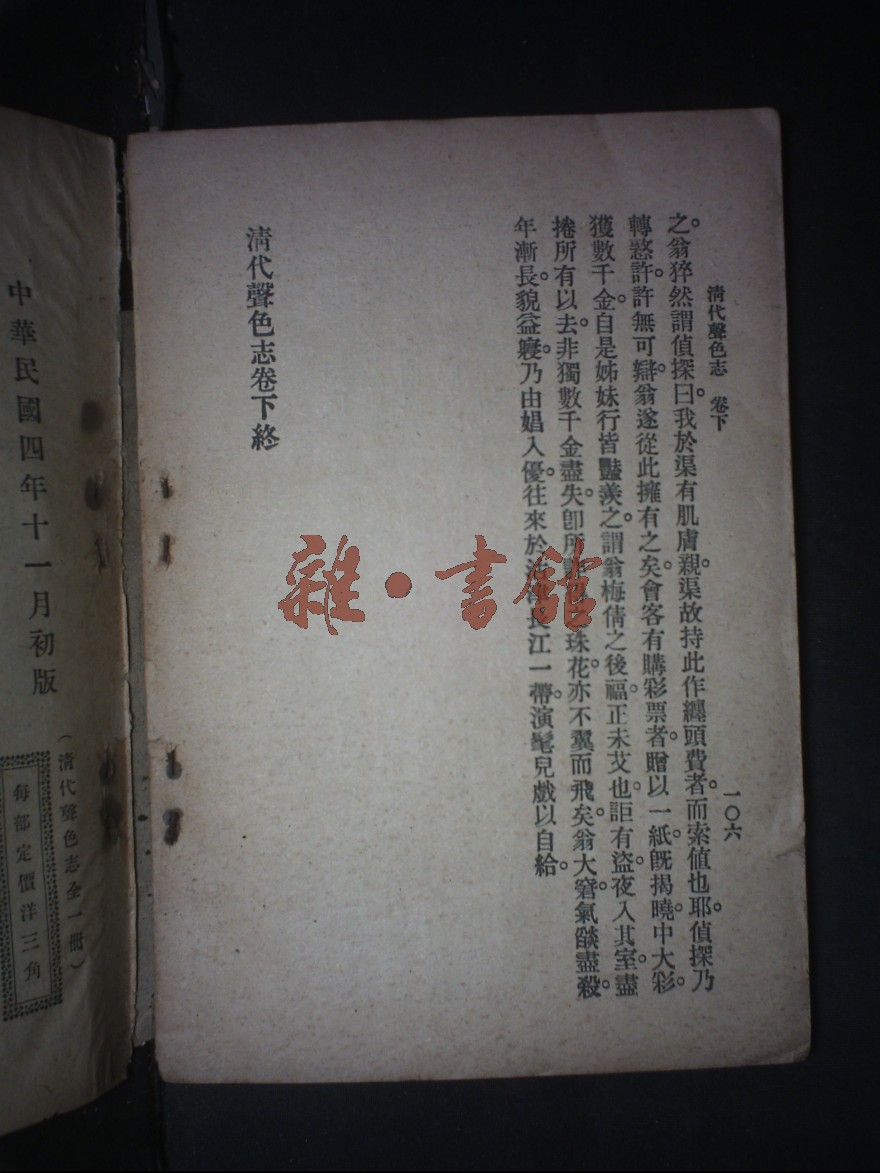 清代聲色志　卷下
一〇六
之。翁猝然謂偵探曰。我於渠有肌膚親。渠故持此作纏頭費者。而索值也耶。偵探乃
轉愁。許許無可辯。翁遂從此擁有之矣。會客有購彩票者。贈以一紙。旣揭曉。中大彩。
獲數千金。自是姊妹行皆豔羨之。謂翁梅倩之後福。正未艾也。詎有盜夜入其室。盡
捲所有以去。非獨數千金盡失。卽所珠花。亦不翼而飛矣。翁大窘。氣燄盡殺。
年漸長。貌益寢。乃由娼入優。往來於長江一帶。演髦兒戲以自給。
清代聲色志卷下終
雜·書館
中華民國四年十一月初版
（清代聲色志全一冊）
每部定價洋三角